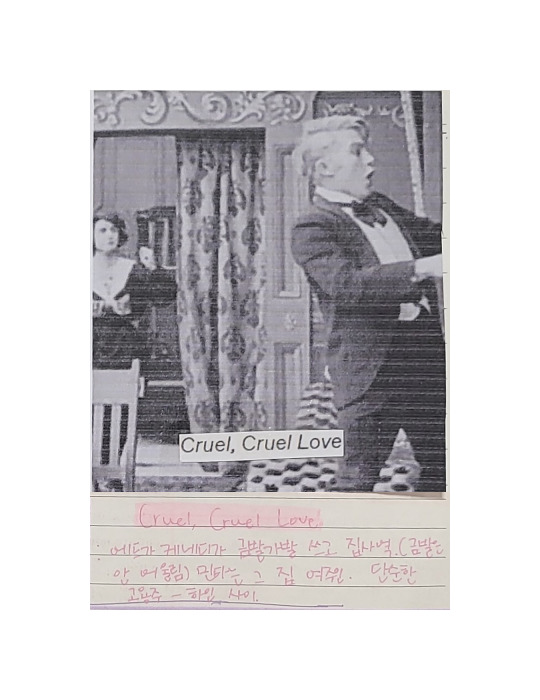 Cruel, Cruel Love
Cruel, Cruel Love.
: 에드가 케네디가 금발가발 쓰고 집사역. (금발은
안 어울림) 민타는 그 집 여주인. 단순한
고용주 - 하인 사이.